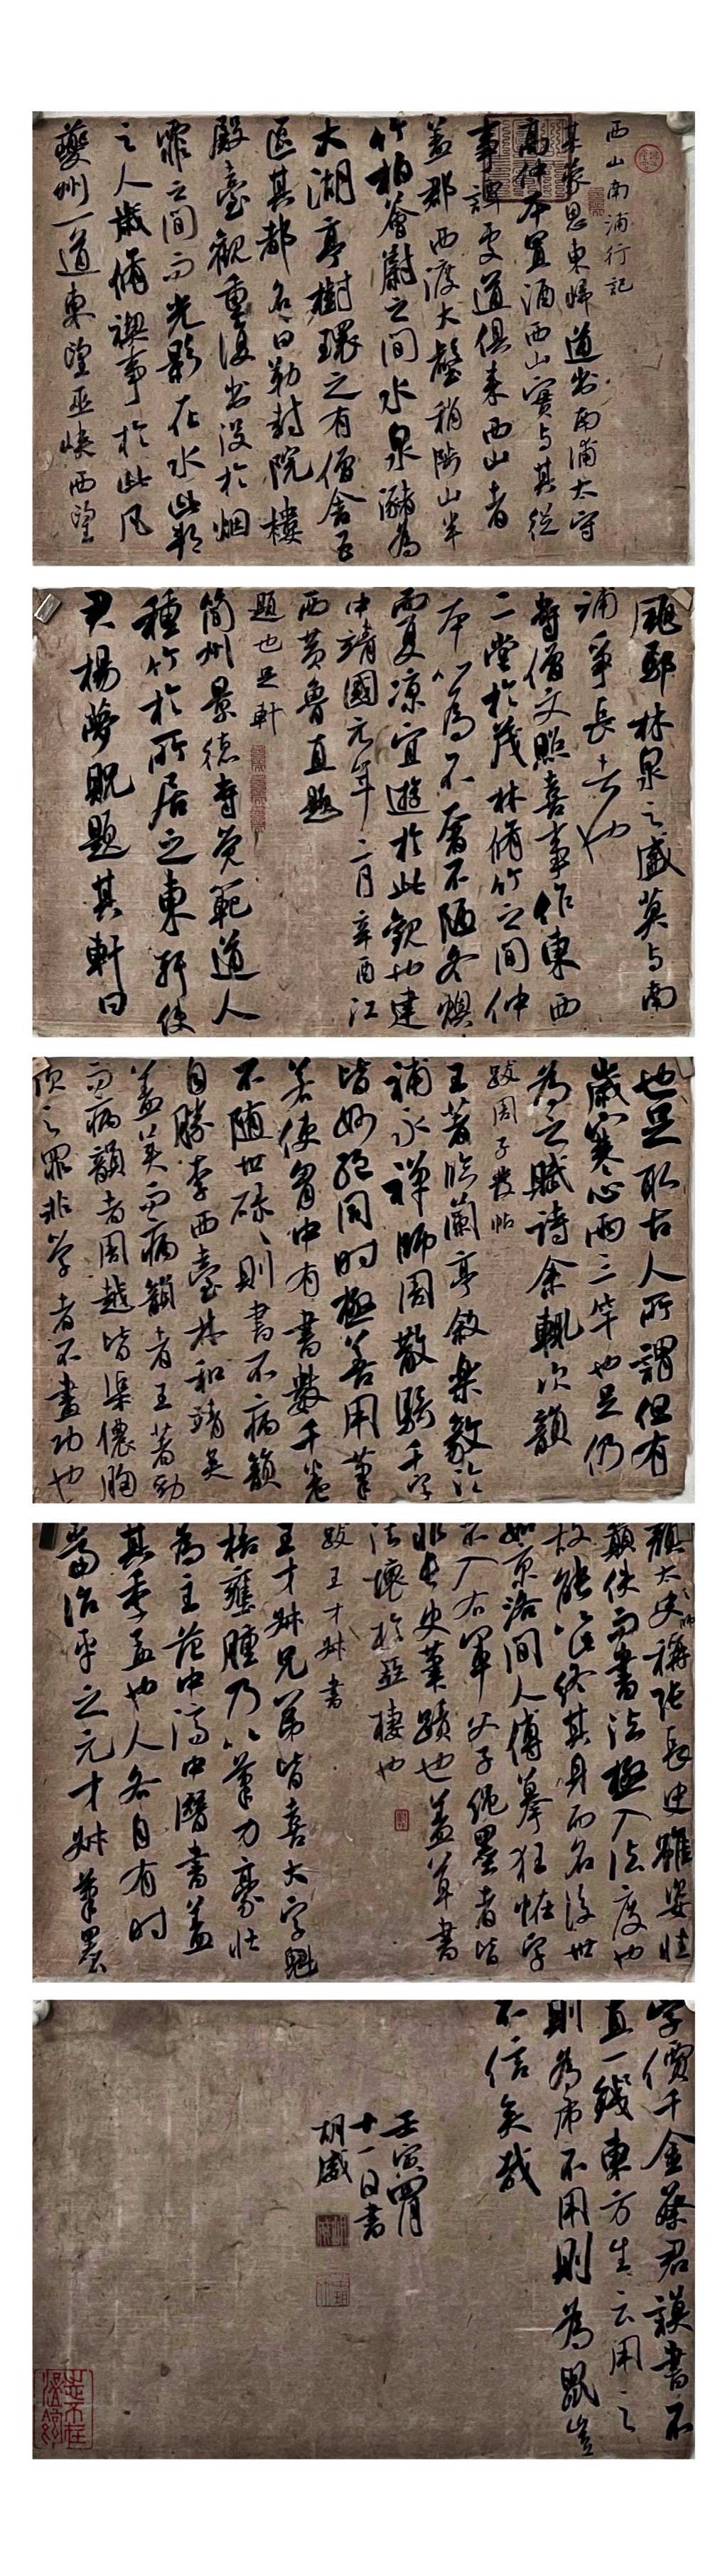 西山南浦行記
某蒙恩東歸道出南浦太守
高仲本置酒西山實与其從
事譚處道俱來西山者
蓋郡西渡大壑稍陟山半
竹柏薈蔚之間水泉瀦為
大湖亭榭環之有僧舍五
區其都名曰勒封院樓
殿臺觀重複出沒於烟
霏之間而光影在水此邦
之人歲脩禊事於此凡
夔州一道東望巫峽西望
郁鄢林泉之盛莫与南
浦爭長者也
寺僧文照喜事作東西
二堂於茂林脩竹之間仲
本以為不奢不陋冬燠
而夏凉宜遊於此觀也建
中靖國元年二月辛酉江
西黃魯直題
題也足軒
簡州景德寺覺範道人
種竹於所居之東軒使
君楊夢貺題其軒曰
也足取古人所謂但有
歲寒心兩三竿也足仍
為之賦詩余輒次韻
跋周子發帖
王著臨蘭亭敘樂毅論
補永禪師周散騎千字
皆妙絕同時極善用筆
若使胷中有書數千卷
不随世碌、則書不病韻
自勝李西臺林和靖矣
蓋美而病韻者王著勁
而病韻者周越皆渠儂胸
次之罪非学者不盡功也
顏太師稱張長史雖姿性
顛佚而書法極入法度也
故能以此終其身而名後世
如京洛間人傅摹狂恠字
不入右軍父子繩墨者皆
非長史筆蹟也蓋草書
法壞於亞棲也
跋王才叔書
王才叔兄弟皆喜大字魁
梧壅腫乃以筆力豪壯
為主范中濟中潛書蓋
其季孟也人各自有時
當治平之元才叔筆墨
字價千金蔡君謨書不
直一錢東方生云用之
則為虎不用則為鼠豈
不信矣哉
壬寅四月
十一日書
胡威